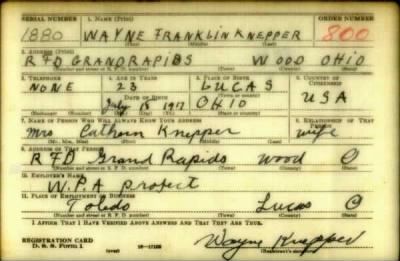 SERIAL NUMBER 1. NAME (Print) ORDER NUMBER
1880 WAYNE FRANKLIN KNEPPER 800
(First) (Middle) (Last)
2. ADDRESS (Print)
RFD GRANDRAPIDS WOOD OHIO
(Number and street or R. F. D. number) (Town) (County) (State)
3. TELEPHONE 4. AGE IN YEARS 5. PLACE OF BIRTH 6. COUNTRY OF CITIZENSHIP
NONE 23 LUCAS
DATE OF BIRTH
July 18 1917 OHIO USA
(Exchange) (Number) (Mo.) (Day) (Yr.) (State or country)
7. NAME OF PERSON WHO WILL ALWAYS KNOW YOUR ADDRESS 8. RELATIONSHIP OF THAT PERSON
Mrs Knepper wife
(Mr., Mrs., Miss) (First) (Middle) (Last)
9. ADDRESS OF THAT PERSON
RFD Grand Rapids Wood O
(Number and street or R. F. D. number) (Town) (County) (State)
10. EMPLOYER'S NAME
W.P.A project
11. PLACE OF EMPLOYMENT OR BUSINESS
Toledo Lucas O
(Number and street or R. F. D. number) (Town) (County) (State)
I AFFIRM THAT I HAVE VERIFIED ABOVE ANSWERS AND THAT THEY ARE TRUE.
REGISTRATION CARD
D. S. S. Form 1 (over) Wayne Knepper